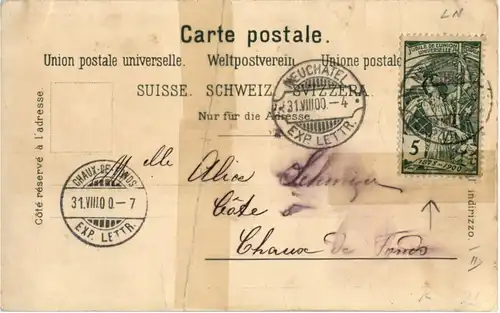 LN
Carte postale.
Union postale universelle. Weltpostverein. Unione postale
SUISSE. SCHWEIZ. SVIZZERA.
Nur für die Adresse.
Côté réservé à l'adresse.
NEUCHATEL
31.VIII00.-4
EXP. LETTR.
JUBILÉ DE L'UNION
POSTALE UNIVERSELLE
5
1875-1900
CHAUX-DE-FONDS
31.VIII00.-7
EXP. LETTR.
Melle Alice
Côte
Chaux De Fonds
indirizzo.